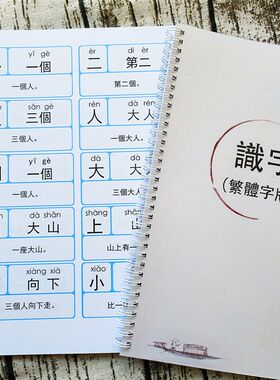 yī gè èr dì èr
一個 二 第二
一個人。 第二個。
sān gè rén dà rén
三個 人 大人
三個人。 一個大人。
yī gè dà dà
一個 大 大
一個人。 三個大人。
dà shān shàng shān
大山 上 山
一座大山。 山上有一
xiàng xià xiǎo
向下 小
三個人向下走。 比一
識字
(繁體字版